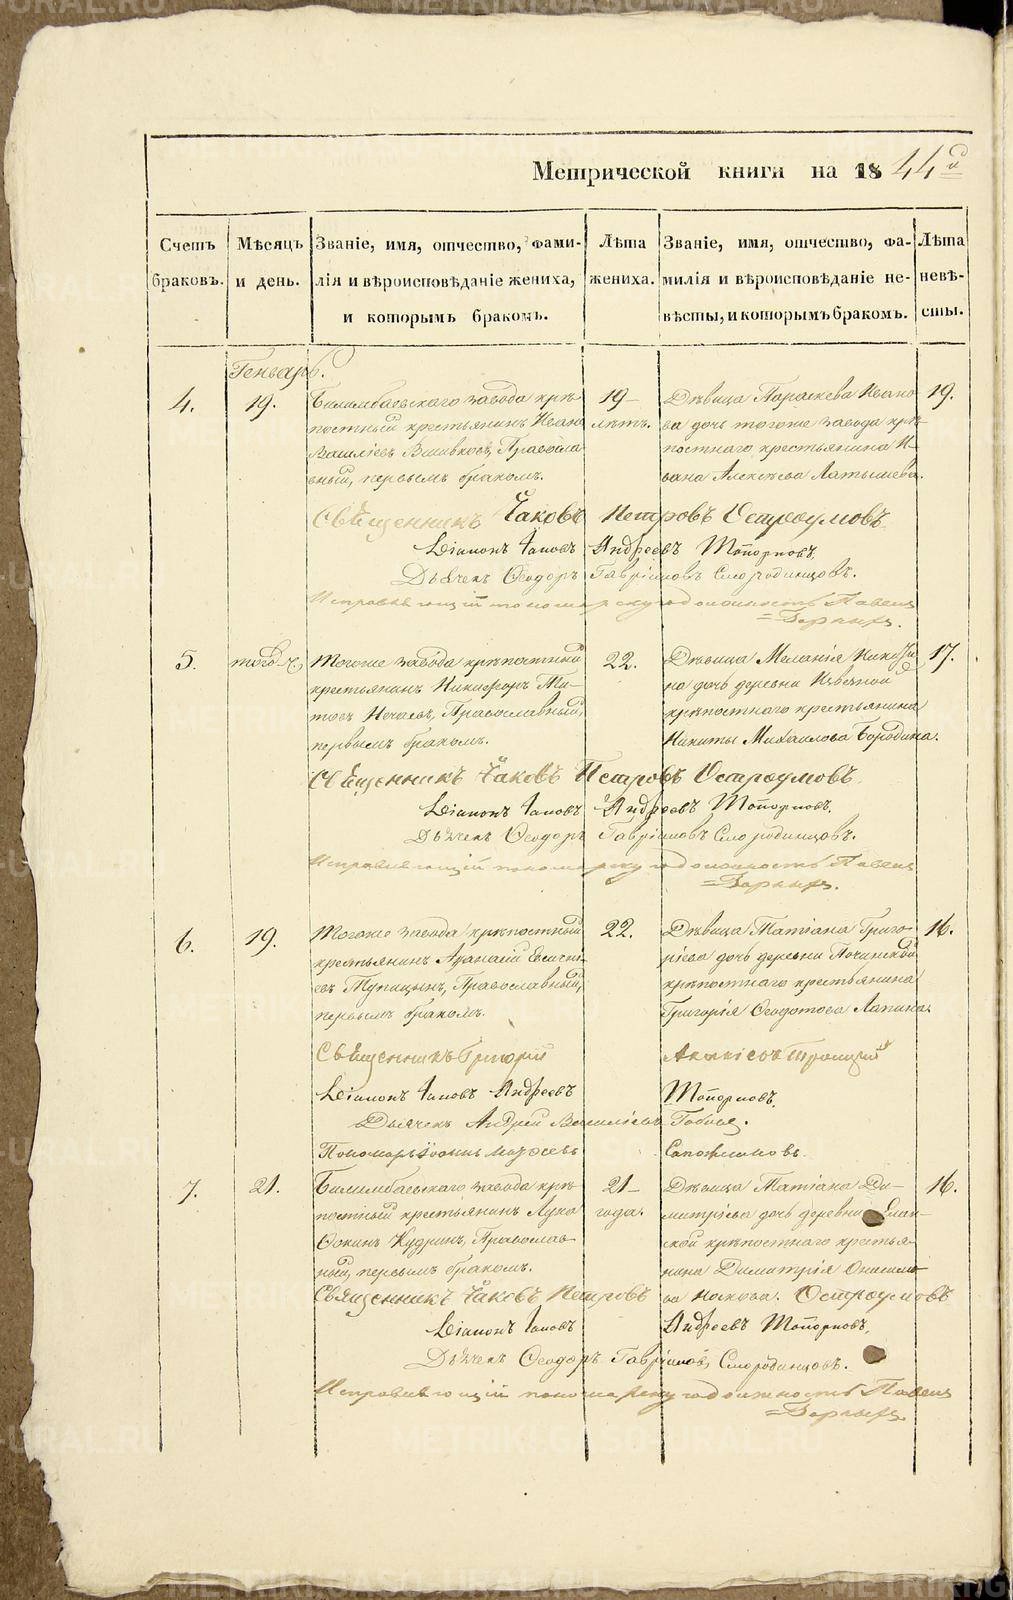 Метрической книги на 1844й
Счетъ браковъ.
Мѣсяцъ и день.
Званіе, имя, отчество, фами-
лія и вѣроисповѣданіе жениха,
и которымъ бракомъ.
Лѣта жениха.
Званіе, имя, отчество, фа-
милія и вѣроисповѣданіе не-
вѣсты, и которымъ бракомъ.
Лѣта невѣ-
сты.
Генварь.
4.
19.
Билимбаевскаго завода крѣ-
постный крестьянинъ Иванъ
Василіевъ Вшивковъ, Правосла
вный, первымъ бракомъ.
19
лѣтъ.
Дѣвица Параскева Ивано
ва дочь тогоже завода крѣ-
постнаго крестьянина И-
вана Алексѣева Латышева.
19.
Священникъ Іаковъ Петровъ Остроумовъ
Діаконъ Іаковъ Андреевъ Топорковъ.
Дьячекъ Ѳеодоръ Гавріиловъ Смородинцовъ.
Исправляющій пономарскую должность Павелъ
5.
того ж
Тогоже завода крѣпостный
крестьянинъ Никифоръ Ти-
товъ Нечаевъ, Православный,
первымъ бракомъ.
22.
Дѣвица Меланія Никити
на дочь деревни Извезной
крѣпостнаго крестьянина
Никиты Михаилова Бородина.
17.
Священникъ Іаковъ Петровъ Остроумовъ
Діаконъ Іаковъ Андреевъ Топорковъ.
Дьячекъ Ѳеодоръ Гавріиловъ Смородинцовъ.
Исправляющій пономарскую должность Павелъ
6.
19.
Тогоже завода крѣпостный
крестьянинъ Аѳанасій Евсигні
евъ Тупицынъ, Православный,
первымъ бракомъ.
22.
Дѣвица Татіана Григо-
ріева дочь деревни Починской
крѣпостнаго крестьянина
Григорія Ѳеодотова Лапина.
16.
Священникъ Григорій Алексіевъ Троицкій
Діаконъ Іаковъ Андреевъ Топорковъ.
Дьячекъ Андрей Василіевъ
Пономарь Іоаннъ Сапожниковъ.
7.
21.
Билимбаевскаго завода крѣ-
постный крестьянинъ Лука
Ѳокинъ Кудринъ, Православ
ный, первымъ бракомъ.
21
года.
Дѣвица Татіана Ди-
митріева дочь деревни Елан-
ской крѣпостнаго крестья-
нина Димитрія
ва Носкова.
16.
Священникъ Іаковъ Петровъ Остроумовъ
Діаконъ Іаковъ Андреевъ Топорковъ.
Дьячекъ Ѳеодоръ Гавріиловъ Смородинцовъ.
Исправляющій пономарскую должность Павелъ
METRIKI.GASO-URAL.RU